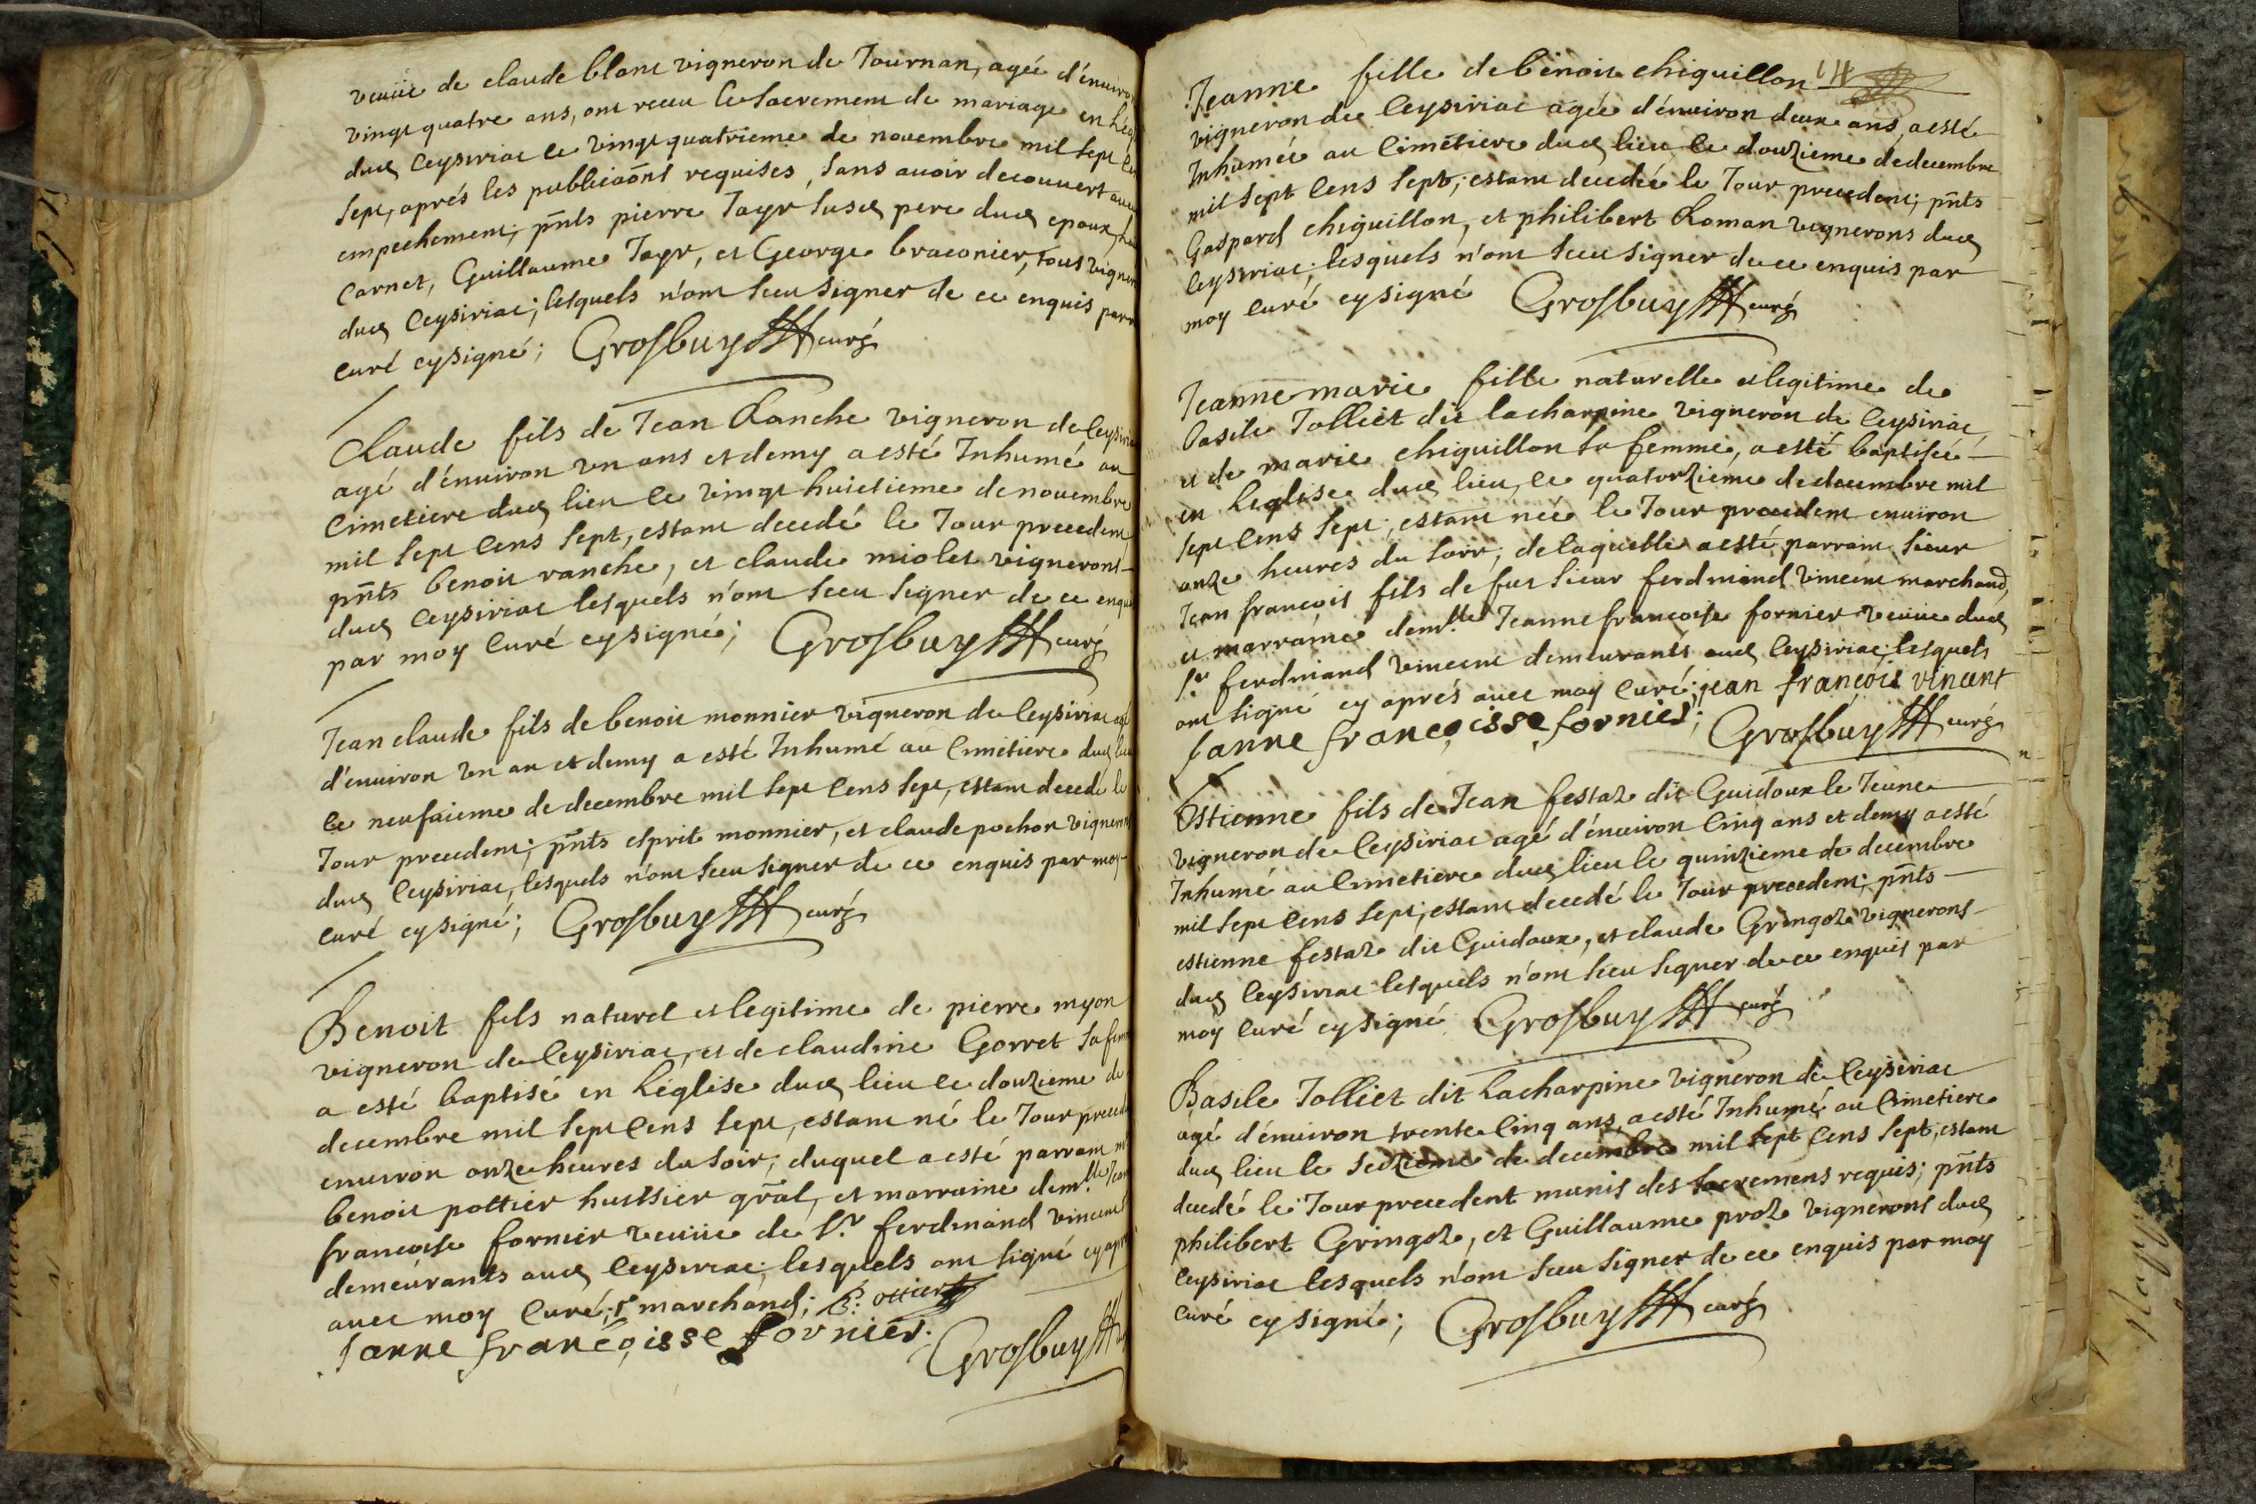 veuüe de claude blanc vigneron de Tournan, agée d'énuiron
vingt quatre ans, ont receu le sacrement de mariage en l'eg
dud Ceysiriac le vingt quatrieme de nouembre mil sept
sept, aprés les publicaōns requises, sans auoir decouuert
empechement; pn̄ts pierre Jayr susd pere dud epoux,
Carnet, Guillaume Jayr, et George braconier, tous vigner
dud Ceysiriac; lesquels n'ont sceu signer de ce enquis par
curé cy signé; Grosbuy curé
Claude fils de Jean Ranche vigneron de Ceysiriac
agé d'énuiron vn ans et demy a esté Inhumé au
Cimetiere dud lieu le vingt huictieme de nouembre
mil sept cens sept, estant decedé le Jour precedent
pn̄ts benoit ranche, et claude miolet vignerons
dud Ceysiriac lesquels n'ont sceu signer de ce enquis
par moy curé cy signé; Grosbuy curé
Jean claude fils de benoit monnier vigneron de Ceysiriac agé
d'enuiron vn an et demy a esté Inhumé au Cimetiere dud lieu
le neufuieme de decembre mil sept cens sept, estant decedé le
Jour precedent; pn̄ts esprit monnier, et claude pochon vignerons
dud Ceysiriac, lesquels n'ont sceu signer de ce enquis par moy
curé cy signé; Grosbuy curé
Benoit fils naturel et legitime de pierre myon
vigneron de Ceysiriac, et de claudine Gorret sa femme
a esté baptisé en l'église dud lieu le douzieme de
decembre mil sept cens sept, estant né le Jour preced
enuiron onze heures du soir; duquel a esté parrain
benoit pottier huissier gn̄al, et marraine dem.lle Jean
francoise fornier veuüe de s.r ferdinand vincent
demeurants aud Ceysiriac; lesquels ont signé cy apr
auec moy curé; marchand; B: ottier
Janne françoisse fornier. Grosbuy
Jeanne fille de benoit chiquillon 64
vigneron de Ceysiriac agée d'énuiron deux ans, a esté
Inhumée au Cimetiere dud lieu le douzieme de decembre
mil sept cens sept; estant decedée le Jour precedent; pn̄ts
Gaspard chiquillon, et philibert Roman vignerons dud
Ceysiriac; lesquels n'ont sceu signer de ce enquis par
moy curé cy signé Grosbuy curé
Jeanne marie fille naturelle et legitime de
basile Jolliet dit lacharpine vigneron de Ceysiriac
et de marie chiquillon sa femme, a esté baptisée
en l'eglise dud lieu, le quatorzieme de decembre mil
sept cens sept; estant née le Jour precedent enuiron
onze heures du soir; de laquelle a esté parrain sieur
Jean francois fils de fut sieur ferdinand vincent marchand,
et marraine dem.lle Jeanne francoise fornier veuüe dud
s.r ferdinand vincent demeurants aud Ceysiriac; lesquels
ont signé cy aprés auec moy curé; jean françois vincent
Janne françoisse fornier; Grosbuy curé
Estienne fils de Jean festaz dit Guidoux le Jeune
vigneron de Ceysiriac agé d'énuiron cinq ans et demy a esté
Inhumé au Cimetiere dud lieu le quinzieme de decembre
mil sept cens sept; estant decedé le Jour precedent; pn̄ts
estienne festaz dit Guidoux, et claude Gringoz vignerons
dud Ceysiriac lesquels n'ont sceu signer de ce enquis par
moy curé cy signé Grosbuy curé
Basile Jolliet dit Lacharpine vigneron de Ceysiriac
agé d'énuiron trente cinq ans, a esté Inhumé au Cimetiere
dud lieu le seizieme de decembre mil sept cens sept, estant
decedé le Jour precedent munis des sacremens requis; pn̄ts
philibert Gringoz, et Guillaume proz vignerons dud
Ceysiriac lesquels n'ont sceu signer de ce enquis par moy
curé cy signé; Grosbuy curé